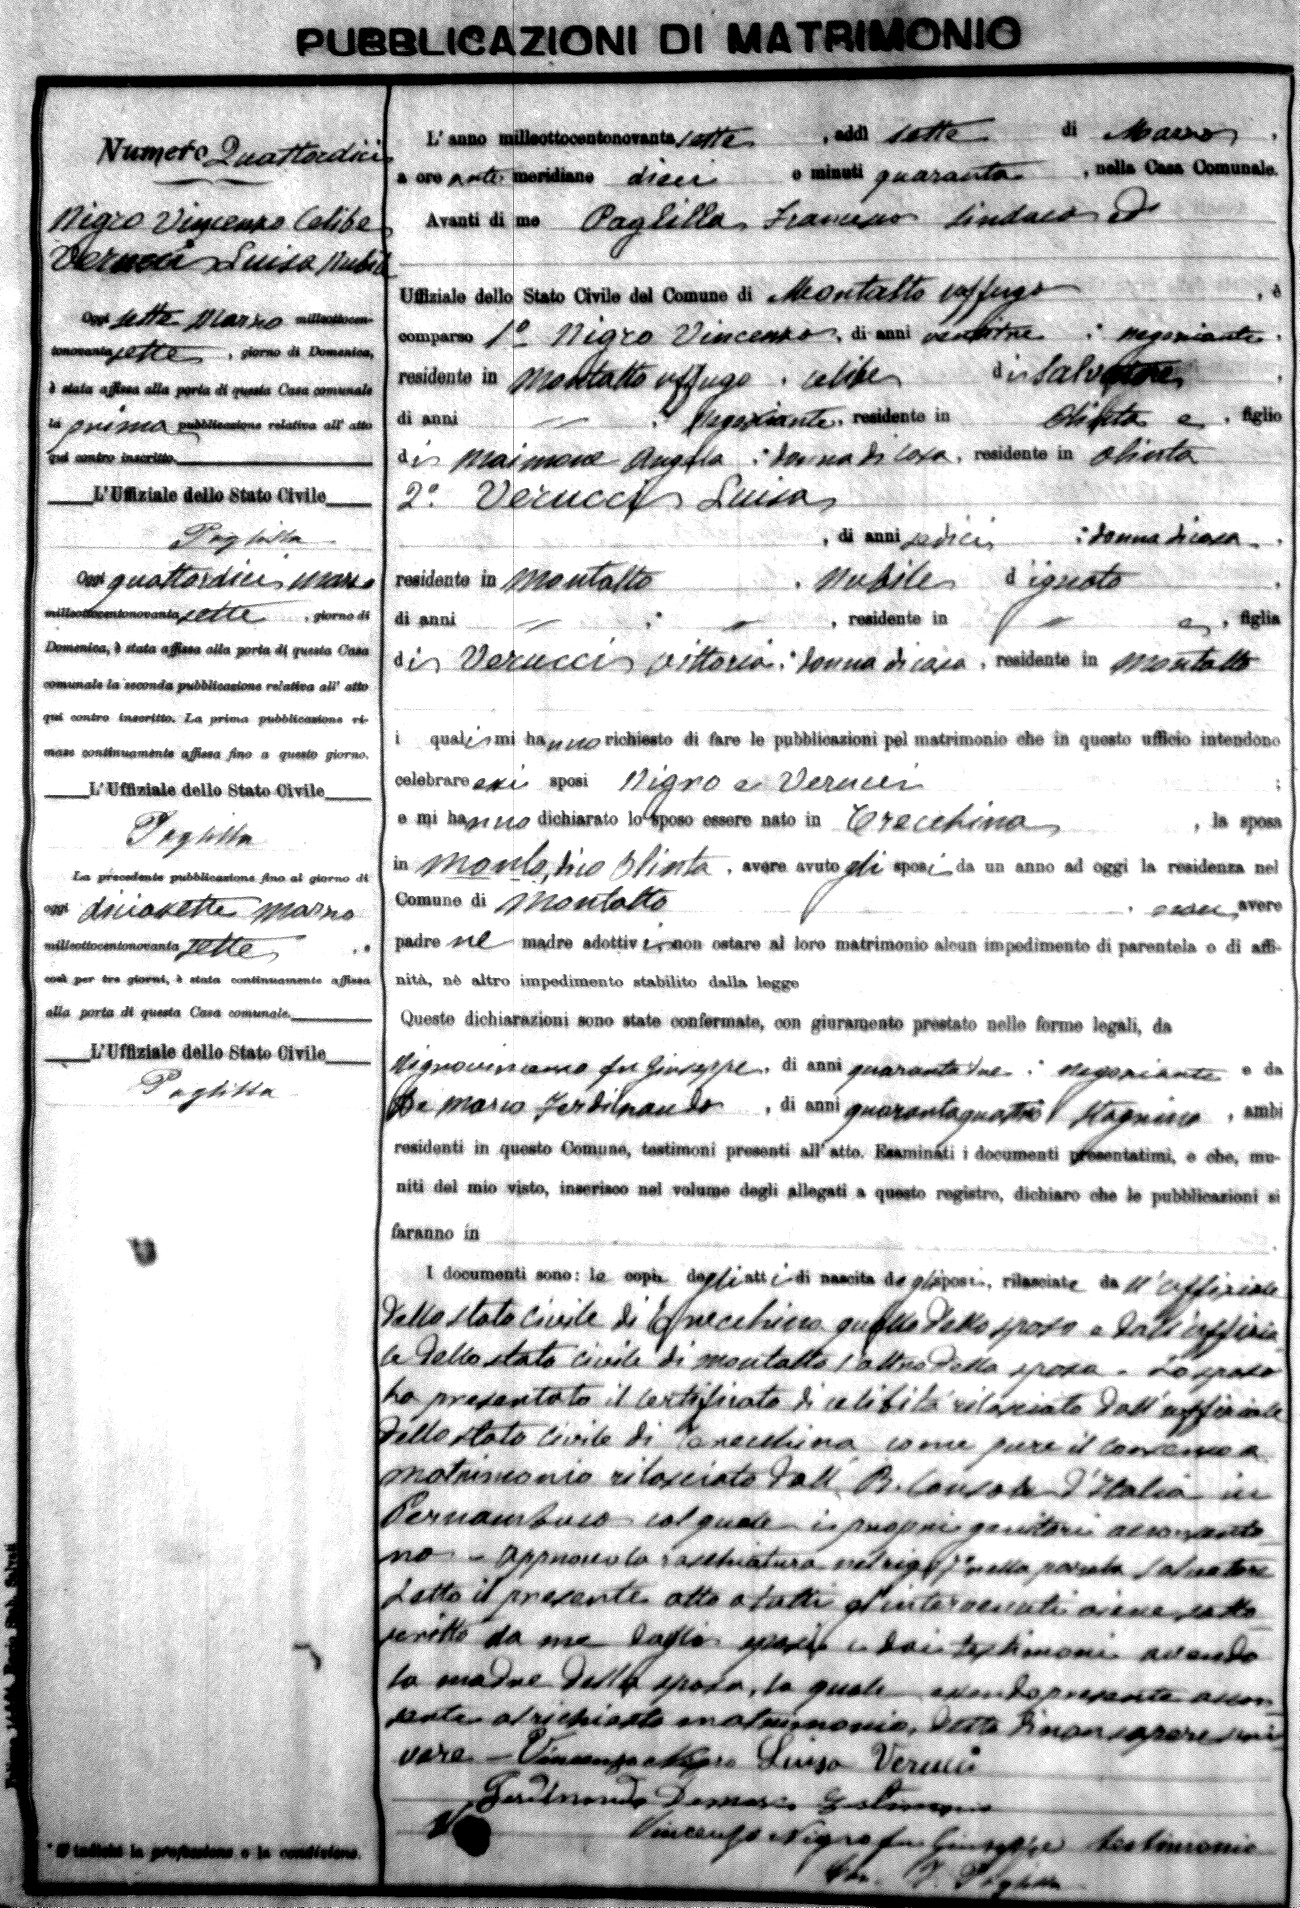 PUBBLICAZIONI DI MATRIMONIO
Numero Quattordici
Nigro Vincenzo Celibe
Verucci Luisa Nubile
Oggi sette Marzo milleottocen-
tonovantasette, giorno di Domenica,
è stata affissa alla porta di questa Casa comunale
la prima pubblicazione relativa all' atto
qui contro inscritto.
L'Uffiziale dello Stato Civile
Paglilla
Oggi quattordici Marzo
milleottocentonovantasette, giorno di
Domenica, è stata affissa alla porta di questa Casa
comunale la seconda pubblicazione relativa all' atto
qui contro inscritto. La prima pubblicazione ri-
mase continuamente affissa fino a questo giorno.
L'Uffiziale dello Stato Civile
Paglilla
La precedente pubblicazione fino al giorno di
oggi diciasette Marzo
milleottocentonovanta sette, e
così per tre giorni, è stata continuamente affissa
alla porta di questa Casa comunale.
L'Uffiziale dello Stato Civile
Paglilla
* Si indichi la professione o la condizione.
L' anno milleottocentonovantasette, addì sette di Marzo,
a ore anti meridiane dieci e minuti quaranta, nella Casa Comunale.
Avanti di me Paglilla Francesco Sindaco ed
Uffiziale dello Stato Civile del Comune di Montalto Uffugo, è
comparso 1º Nigro Vincenzo, di anni ventitre negoziante,
residente in Montalto Uffugo, celibe di Salvatore,
di anni negoziante, residente in e, figlio
di Maimone Angela donna di casa, residente in
2º Verucci Luisa
, di anni sedici donna di casa,
residente in Montalto, Nubile d'ignoto,
di anni , residente in e, figlia
di Verucci Vittoria, donna di casa, residente in Montalto
i quali mi hanno richiesto di fare le pubblicazioni pel matrimonio che in questo ufficio intendono
celebrare essi sposi Nigro e Verucci ;
e mi hanno dichiarato lo sposo essere nato in Trecchina, la sposa
in dico, avere avuto gli sposi da un anno ad oggi la residenza nel
Comune di Montalto, avere
padre nè madre adottivi non ostare al loro matrimonio alcun impedimento di parentela o di affi-
nità, nè altro impedimento stabilito dalla legge
Queste dichiarazioni sono state confermate, con giuramento prestato nelle forme legali, da
Nigro Vincenzo fu Giuseppe, di anni quarantadue negoziante e da
De Marco Ferdinando, di anni quarantaquattro Stagnino, ambi
residenti in questo Comune, testimoni presenti all' atto. Esaminati i documenti presentatimi, e che, mu-
niti del mio visto, inserisco nel volume degli allegati a questo registro, dichiaro che le pubblicazioni si
faranno in
I documenti sono: le copie degli atti di nascita degli sposi, rilasciate dall'uffiziale
dello stato civile di Trecchina quello dello sposo e dall'uffizia
le dello stato civile di Montalto l'altro della sposa. Lo sposo
ha presentato il certificato di celibità rilasciato dall'uffiziale
dello stato civile di Trecchina come pure il consenso a
matrimonio rilasciato dall' R. Console d'Italia in
Pernambuco col quale i propri genitori acconsento
no - approvo la raschiatura nel rigo 7º nella parola Salvatore
Letto il presente atto a tutti gl'intervenuti viene sotto
scritto da me dagli sposi e dai testimoni avendo
la madre della sposa, la quale essendo presente accon
sente al richiesto matrimonio, detto di non sapere scri
vere - Vincenzo Nigro Luisa Verucci
Ferdinando Demarco testimonio
Vincenzo Nigro fu Giuseppe testimonio
F. Paglilla